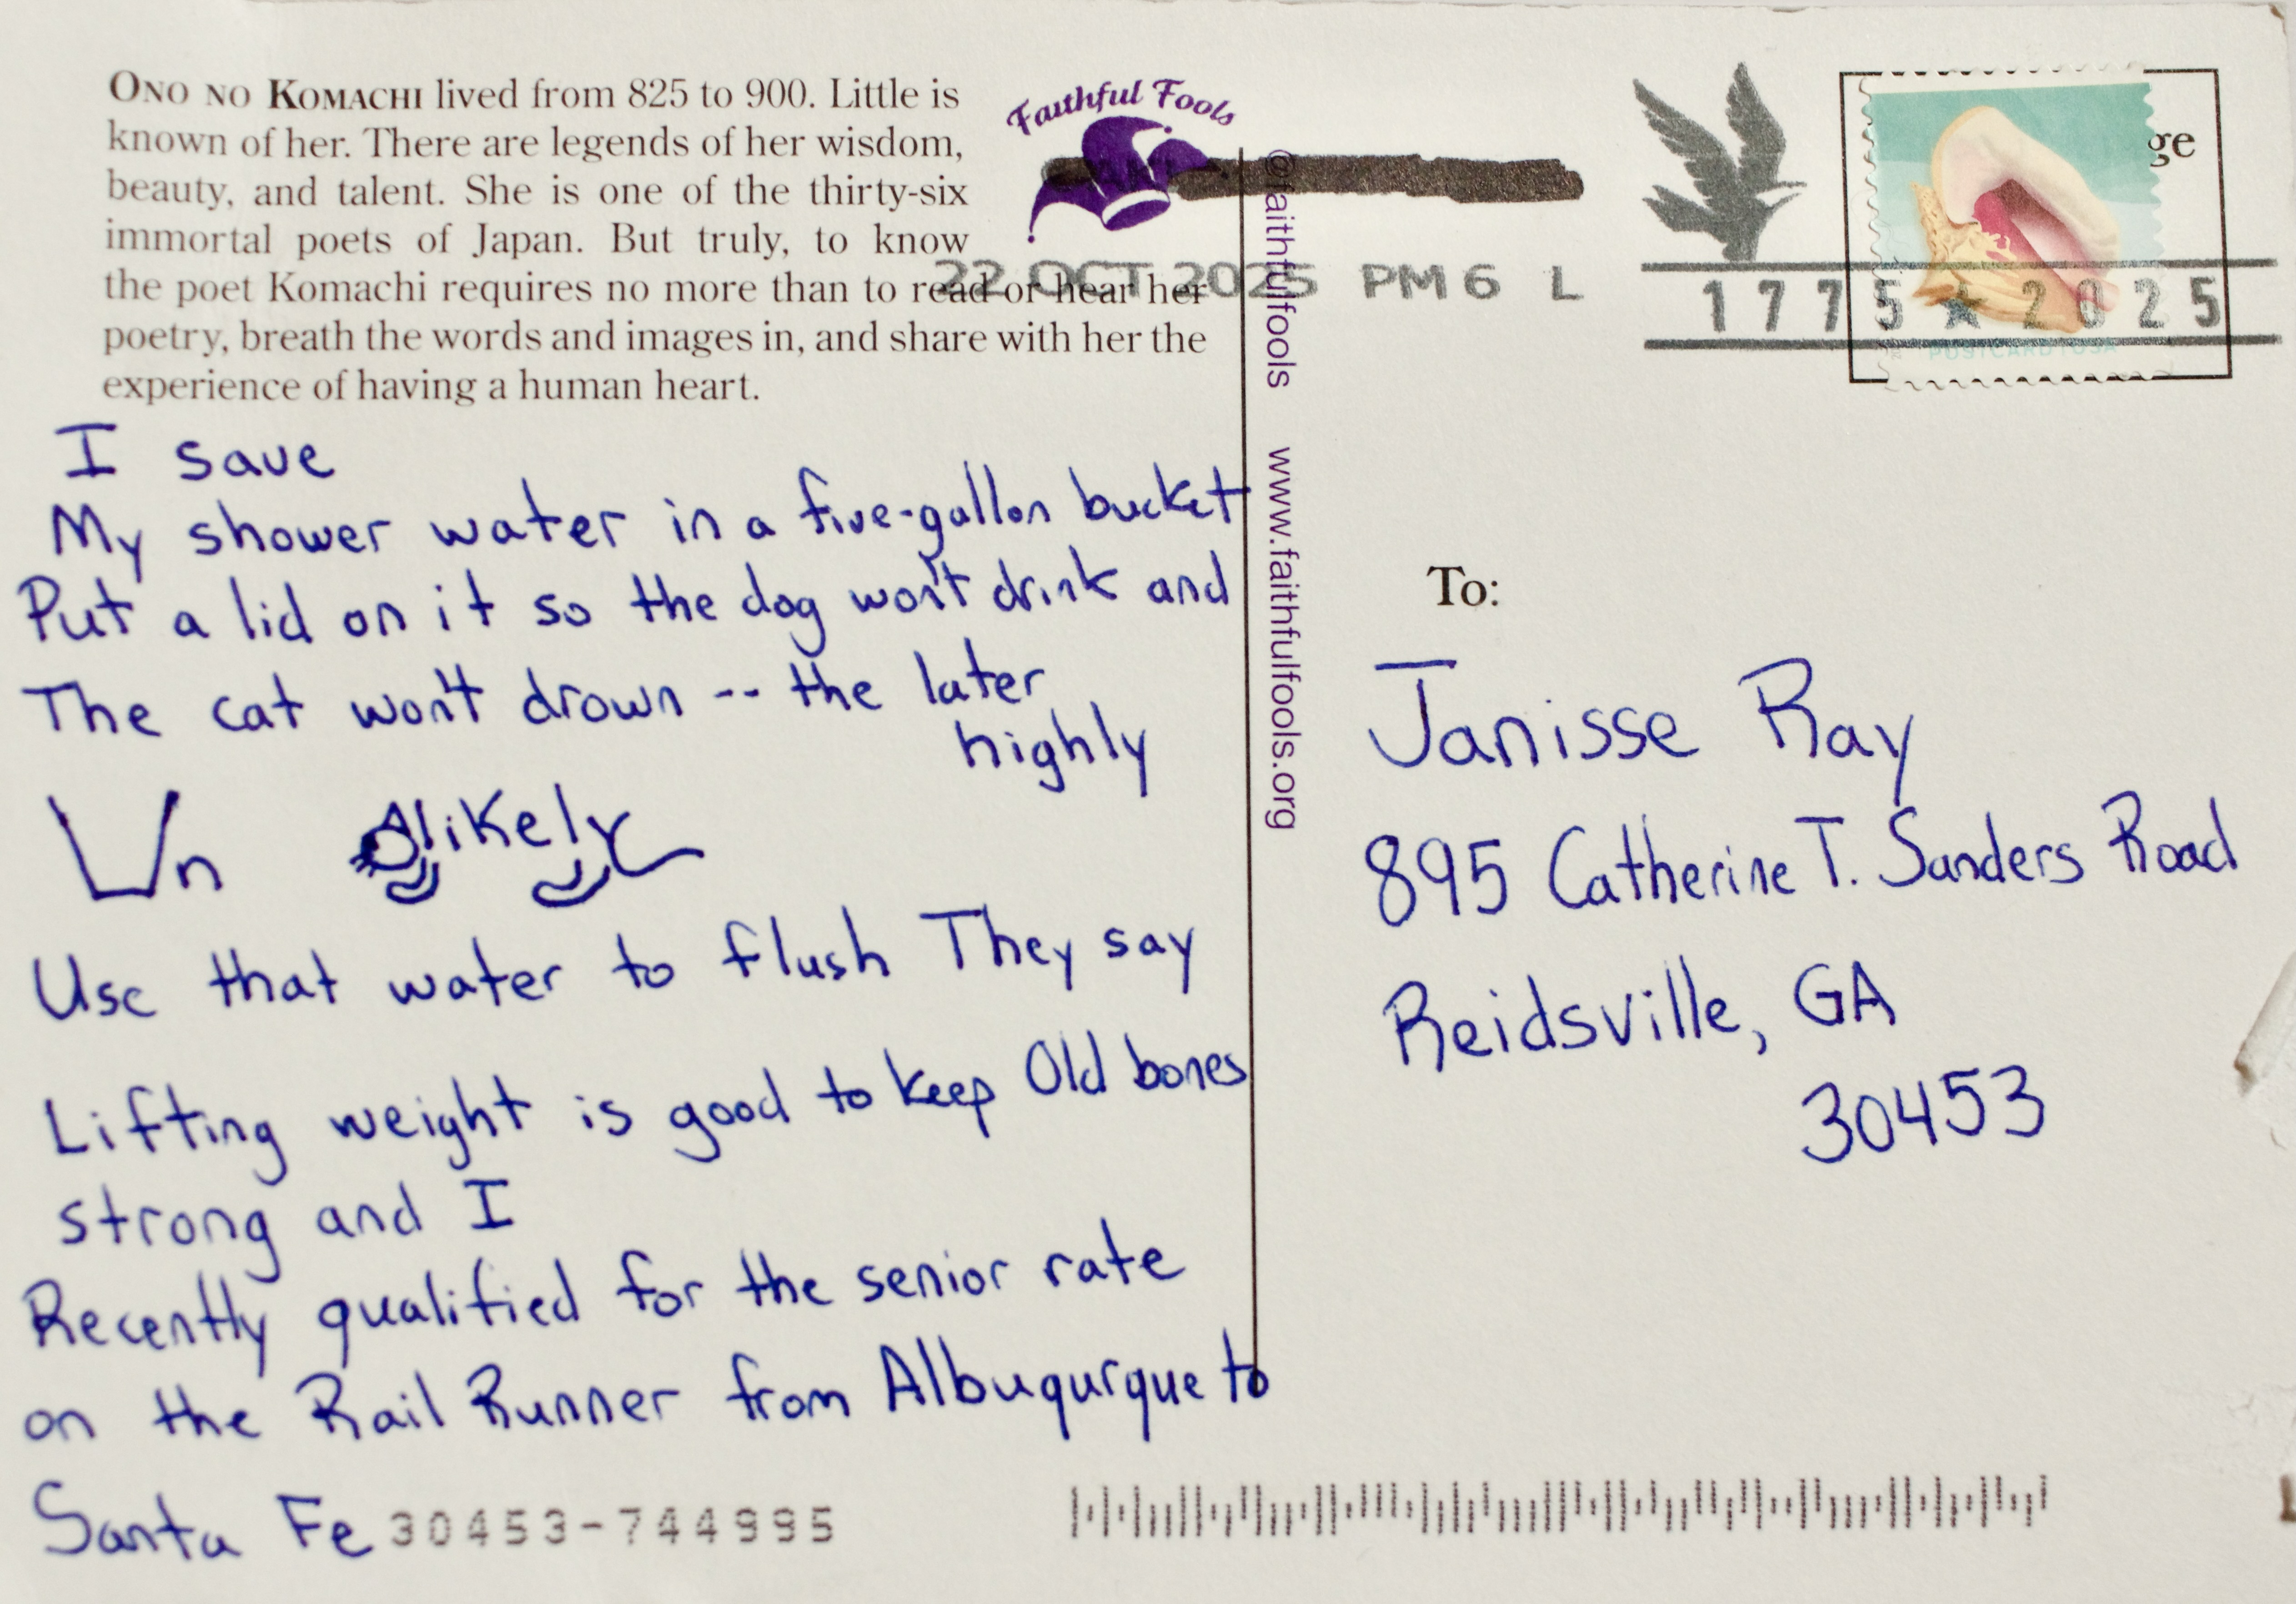 ONO NO KOMACHI lived from 825 to 900. Little is
known of her. There are legends of her wisdom,
beauty, and talent. She is one of the thirty-six
immortal poets of Japan. But truly, to know
the poet Komachi requires no more than to read or hear her
poetry, breath the words and images in, and share with her the
experience of having a human heart.
Faithful Fools
22 OCT 2025 PM 6 L
ge
1775 ★ 2025
POSTCARD USA
I save
My shower water in a five-gallon bucket
Put a lid on it so the dog won't drink and
The cat won't drown -- the later
highly
Un likely
Use that water to flush They say
Lifting weight is good to keep Old bones
strong and I
Recently qualified for the senior rate
on the Rail Runner from Albuqurque to
Santa Fe
@faithfulfools www.faithfulfools.org
To:
Janisse Ray
895 Catherine T. Sanders Road
Reidsville, GA
30453
30453-744995